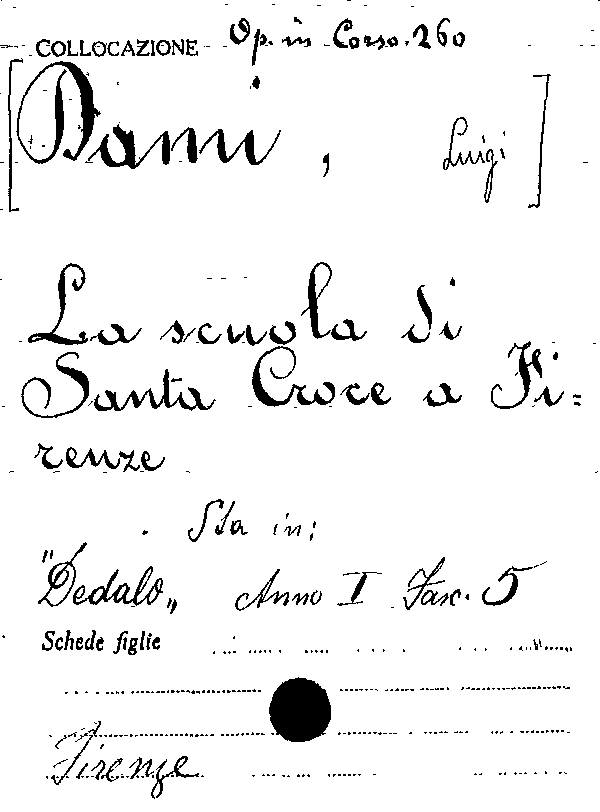 COLLOCAZIONE Op. in Corso. 260
[Dami, Luigi]
La scuola di
Santa Croce a Fi=
renze
Sta in:
"Dedalo„ Anno I Fasc. 5
Schede figlie
Firenze